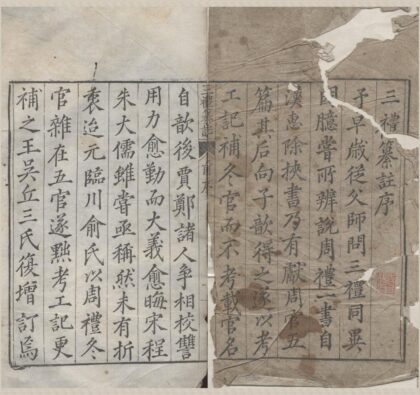 三禮纂註序
予早嵗從父師問三禮同異
因臆嘗所辨說周禮一書自
漢惠除挾書乃有獻周官五
篇其后向子歆得之遂以考
工記補冬官而不考載官名
三禮纂註 序
自歆後賈鄭諸人爭相校讐
用力愈勤而大義愈晦宋程
朱大儒雖嘗亟稱然未有折
衷迨元臨川俞氏以周禮冬
官雜在五官遂黜考工記更
補之王吳丘三氏復增訂焉